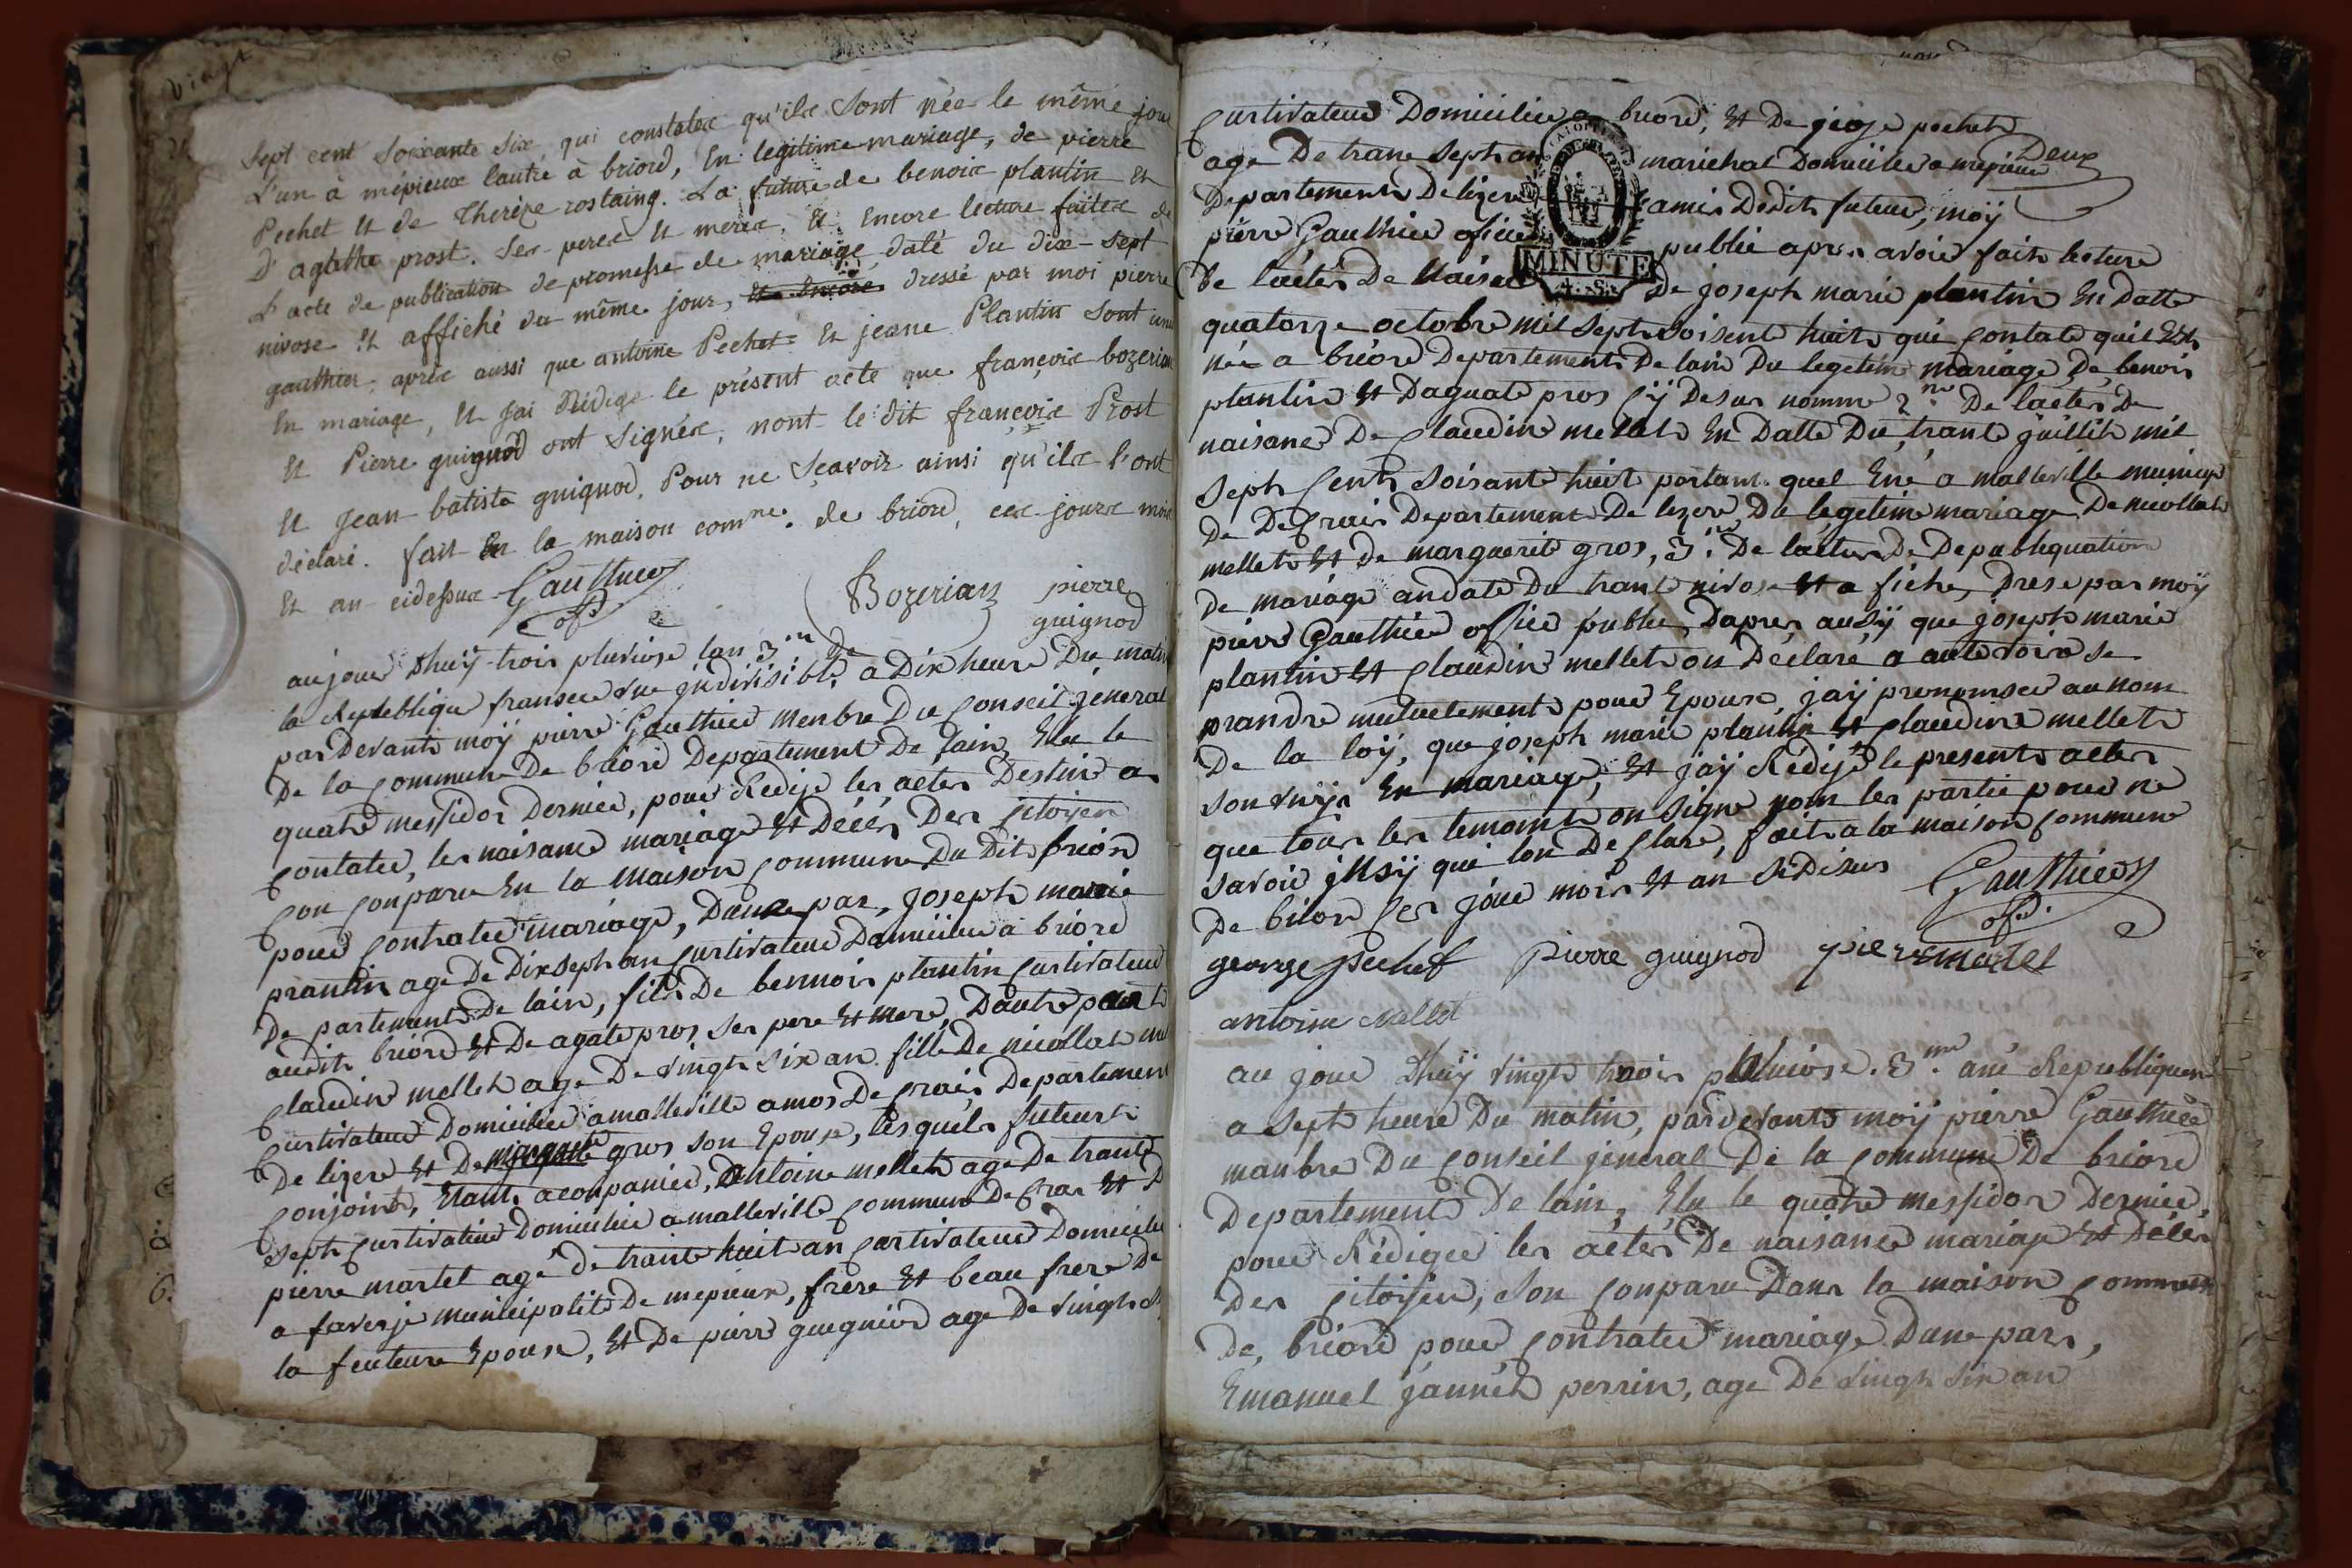 vingt
sept cent soixante six, qui constatex qu'ilx sont néx le même jour
L'un à mépieux lautre à briord, En légitime mariage, de pierre
Pechet et de Thereze rostaing. La future de benoix plantin et
D'agathe prost. Sex perex et merex, Et Encore lecture faitex de
L'acte de publication de promesse de mariage, daté du dix-sept
nivose et affiché du même jour, et Encore dressé par moi pierre
gauthier, aprèx aussi que antoine Pechet et jeane Plantin sont unis
En mariage, et jai Rédigé le présent acte que françoix bozerian
et Pierre guignod ont signéx, nont le dit françoix Prost
et jean batiste guignod. Pour ne sçavoir ainsi qu'ilx l'ont
déclaré. fait En la maison comne. de briord, cex jourx mois
Et an cidessux Gauthier Bozerian pierre
off. guignod
aujour dhuÿ trois pluviose lan 3me de
la Republique fransece une jndivisible a Dix heure Du matin
par Devant moÿ pierre Gauthier menbre Du Conseil jeneral
De la Commune De briord Departement De lain, Elu le
quatre messidor Dernier, pour Redije les actes Destine a
Contater, les naisance mariage et Décés Des Citoyen
Son Conparu En la maison Commune Du Dit briord
pour Contrater mariage, Dune par, joseph marie
prantin age De Dix seph an Curtivateur Domicilier a briord
De partement De lain, fils De bennois plantin Curtivateur
audit briord et De agate pros ses pere et mere, Dautre part
Claudin mellet age De vingt six an fille De nicollat me
Curtivateur Domicilier a malleville amos De Crais Departement
De lizere et De margatte gros son Epouse, les quels futeurs
Conjoint, Etant aconpanier, Dantoine mellet age De trante
seph Curtivateur Domicilier a malleville Commune De Cras et D
pierre martel age De trante huit an Curtivateur Domicilie
a faverje municipalite De mepieux, frere et beau frere De
la feuture Epouse, et De pierre guignier age De vingt s
Curtivateur Domicilier a briord, et De jiorje pechet
age De trane seph an marichal Domicilier a mepieux Deux
Departement De lizere amis Dedit futeur, moÿ
pierre Gauthier oficier publie apres avoir fait lecture
De lactes De Naisan De joseph marie plantin En Datte
MINUTE
quatorze octobre mil seph soisent huit qui Contate quil Est
née a briord Departement De lain Du legetime mariage De benois
plantin et Daguate pros Cÿ Desus nomme 2me De lactes De
naisance De Claudine mellet En Datte Du trante juillit mil
seph Cent soisante huit portant quel Ené a malleville municip
De De Crais Departement De lezere Du legetime mariage De nicollat
mellet et de marguerite gros, 3me De lactes De Depubliquation
De mariage andate Du trante nivose et a fiche, Drese par moÿ
pierre Gauthier oficie publie, Dapres ausÿ que joseph marie
plantin et Claudine mellet on Déclaré a aute voix se
prandre mutuelement pour Epoux, jaÿ prenomser au nom
De la loÿ, que joseph marie plantin et Claudine mellet
son unÿs En mariage, et jaÿ Rédijé le present actes
que tous les temoint on signe nom les partie pour ne
savoir jnsÿ qui lon De Clare, fait a la maison Commune
De brior Ces joue mois et an siDisus Gauthier
off.
george pechet Pierre guignod pierre martel
antoine Mellet
au joue dhuÿ vingt trois pluviose. 3me. ané Republiquen
a sept heure Du matin, par devant moÿ pierre Gauthier
manbre Du Conseil jeneral De la Commune De briord
Departement De lain, Elu le quatre messidor Dernier,
pour Rédiger les actes De naisance mariage et Déces
Des Citoÿen, son Conparu Dans la maison Commun
De, briord pour Contrater mariage Dune part,
Emanuel jannét perrin, age De vingt six an